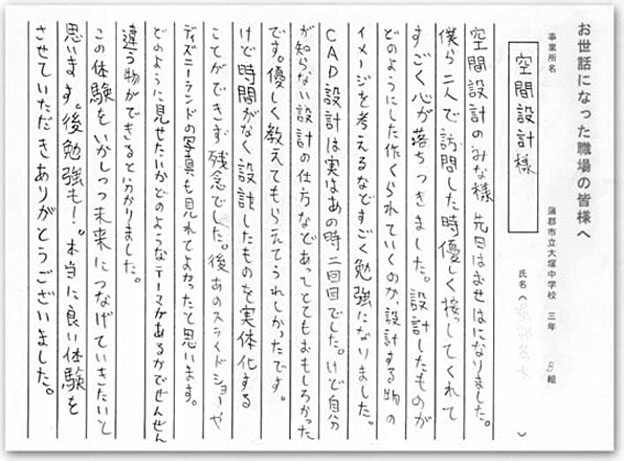 お世話になった職場の皆様へ
事業所名
空間設計様
蒲郡市立大塚中学校 三年 B組
氏名（ ）
空間設計のみな様 先日はおせはになりました。
僕ら二人で訪問した時優しく接っしてくれて
すごく心が落ちつきました。設計したものが
どのようにした作くられていくのか、設計する物の
イメージを考えるなどすごく勉強になりました。
CAD設計は実はあの時二回目でした。けど自分
が知らない設計の仕方などあってとてもおもしろかった
です。優しく教えてもらえてうれしかったです。
けど時間がなく設計したものを実体化する
ことができず残念でした。後あのスライドショーや
ディズニーランドの写真も見れてよかったと思います。
どのように見せたいかどのようなテーマがあるかでぜんぜん
違う物ができると分かりました。
この体験をいかしつつ未来につなげていきたいと
思います。後勉強も！。本当に良い体験を
させていただきありがとうございました。